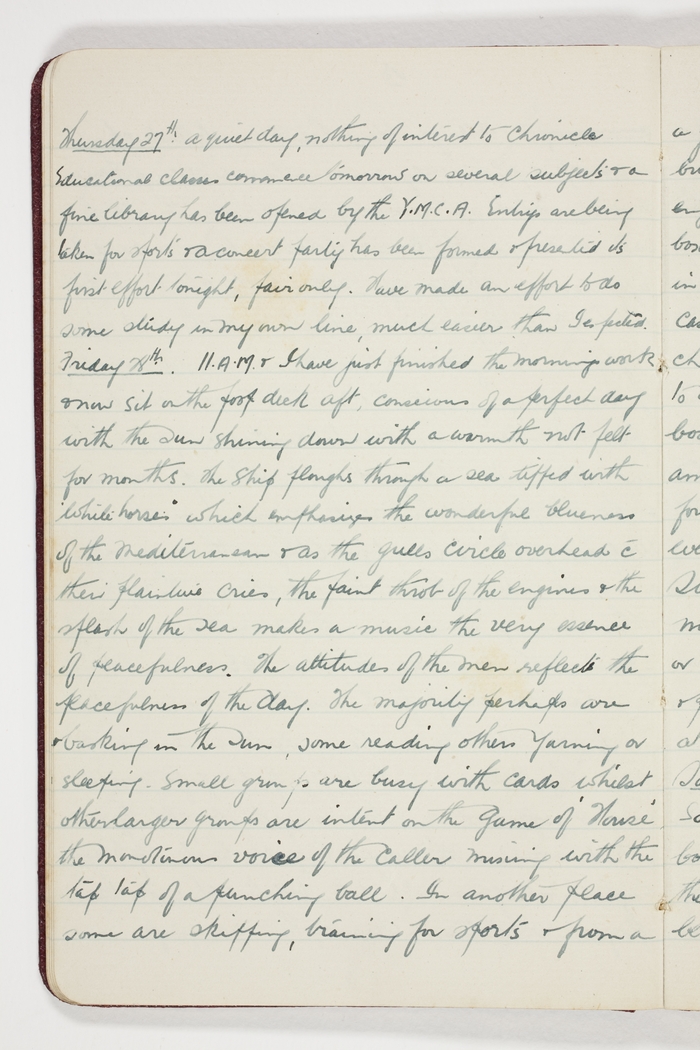 Thursday 27th. a quiet day, nothing of interest to chronicle
Educational classes commence tomorrow on several subjects & a
fine library has been opened by the Y.M.C.A. Entrys are being
taken for sports & a concert party has been formed & presented its
first effort tonight, fair only. Have made an effort to do
some study in my own line, much easier than I expected.
Friday 28th. 11. A.M. & I have just finished the mornings work
& now sit on the poop deck aft, conscious of a perfect day
with the sun shining down with a warmth not felt
for months. The ship ploughs through a sea tipped with
"white horses" which emphasizes the wonderful blueness
of the Mediterranean & as the gulls circle overhead c̄
their plaintive cries, the faint throb of the engines & the
splash of the sea makes a music the very essence
of peacefulness. The attitudes of the men reflects the
peacefulness of the day. The majority perhaps are
basking in the sun, some reading others yarning or
sleeping. Small groups are busy with cards whilst
other larger groups are intent on the game of 'House'
the monotinous voice of the caller mixing with the
tap tap of a punching ball. In another place
some are skipping, training for sports & from a